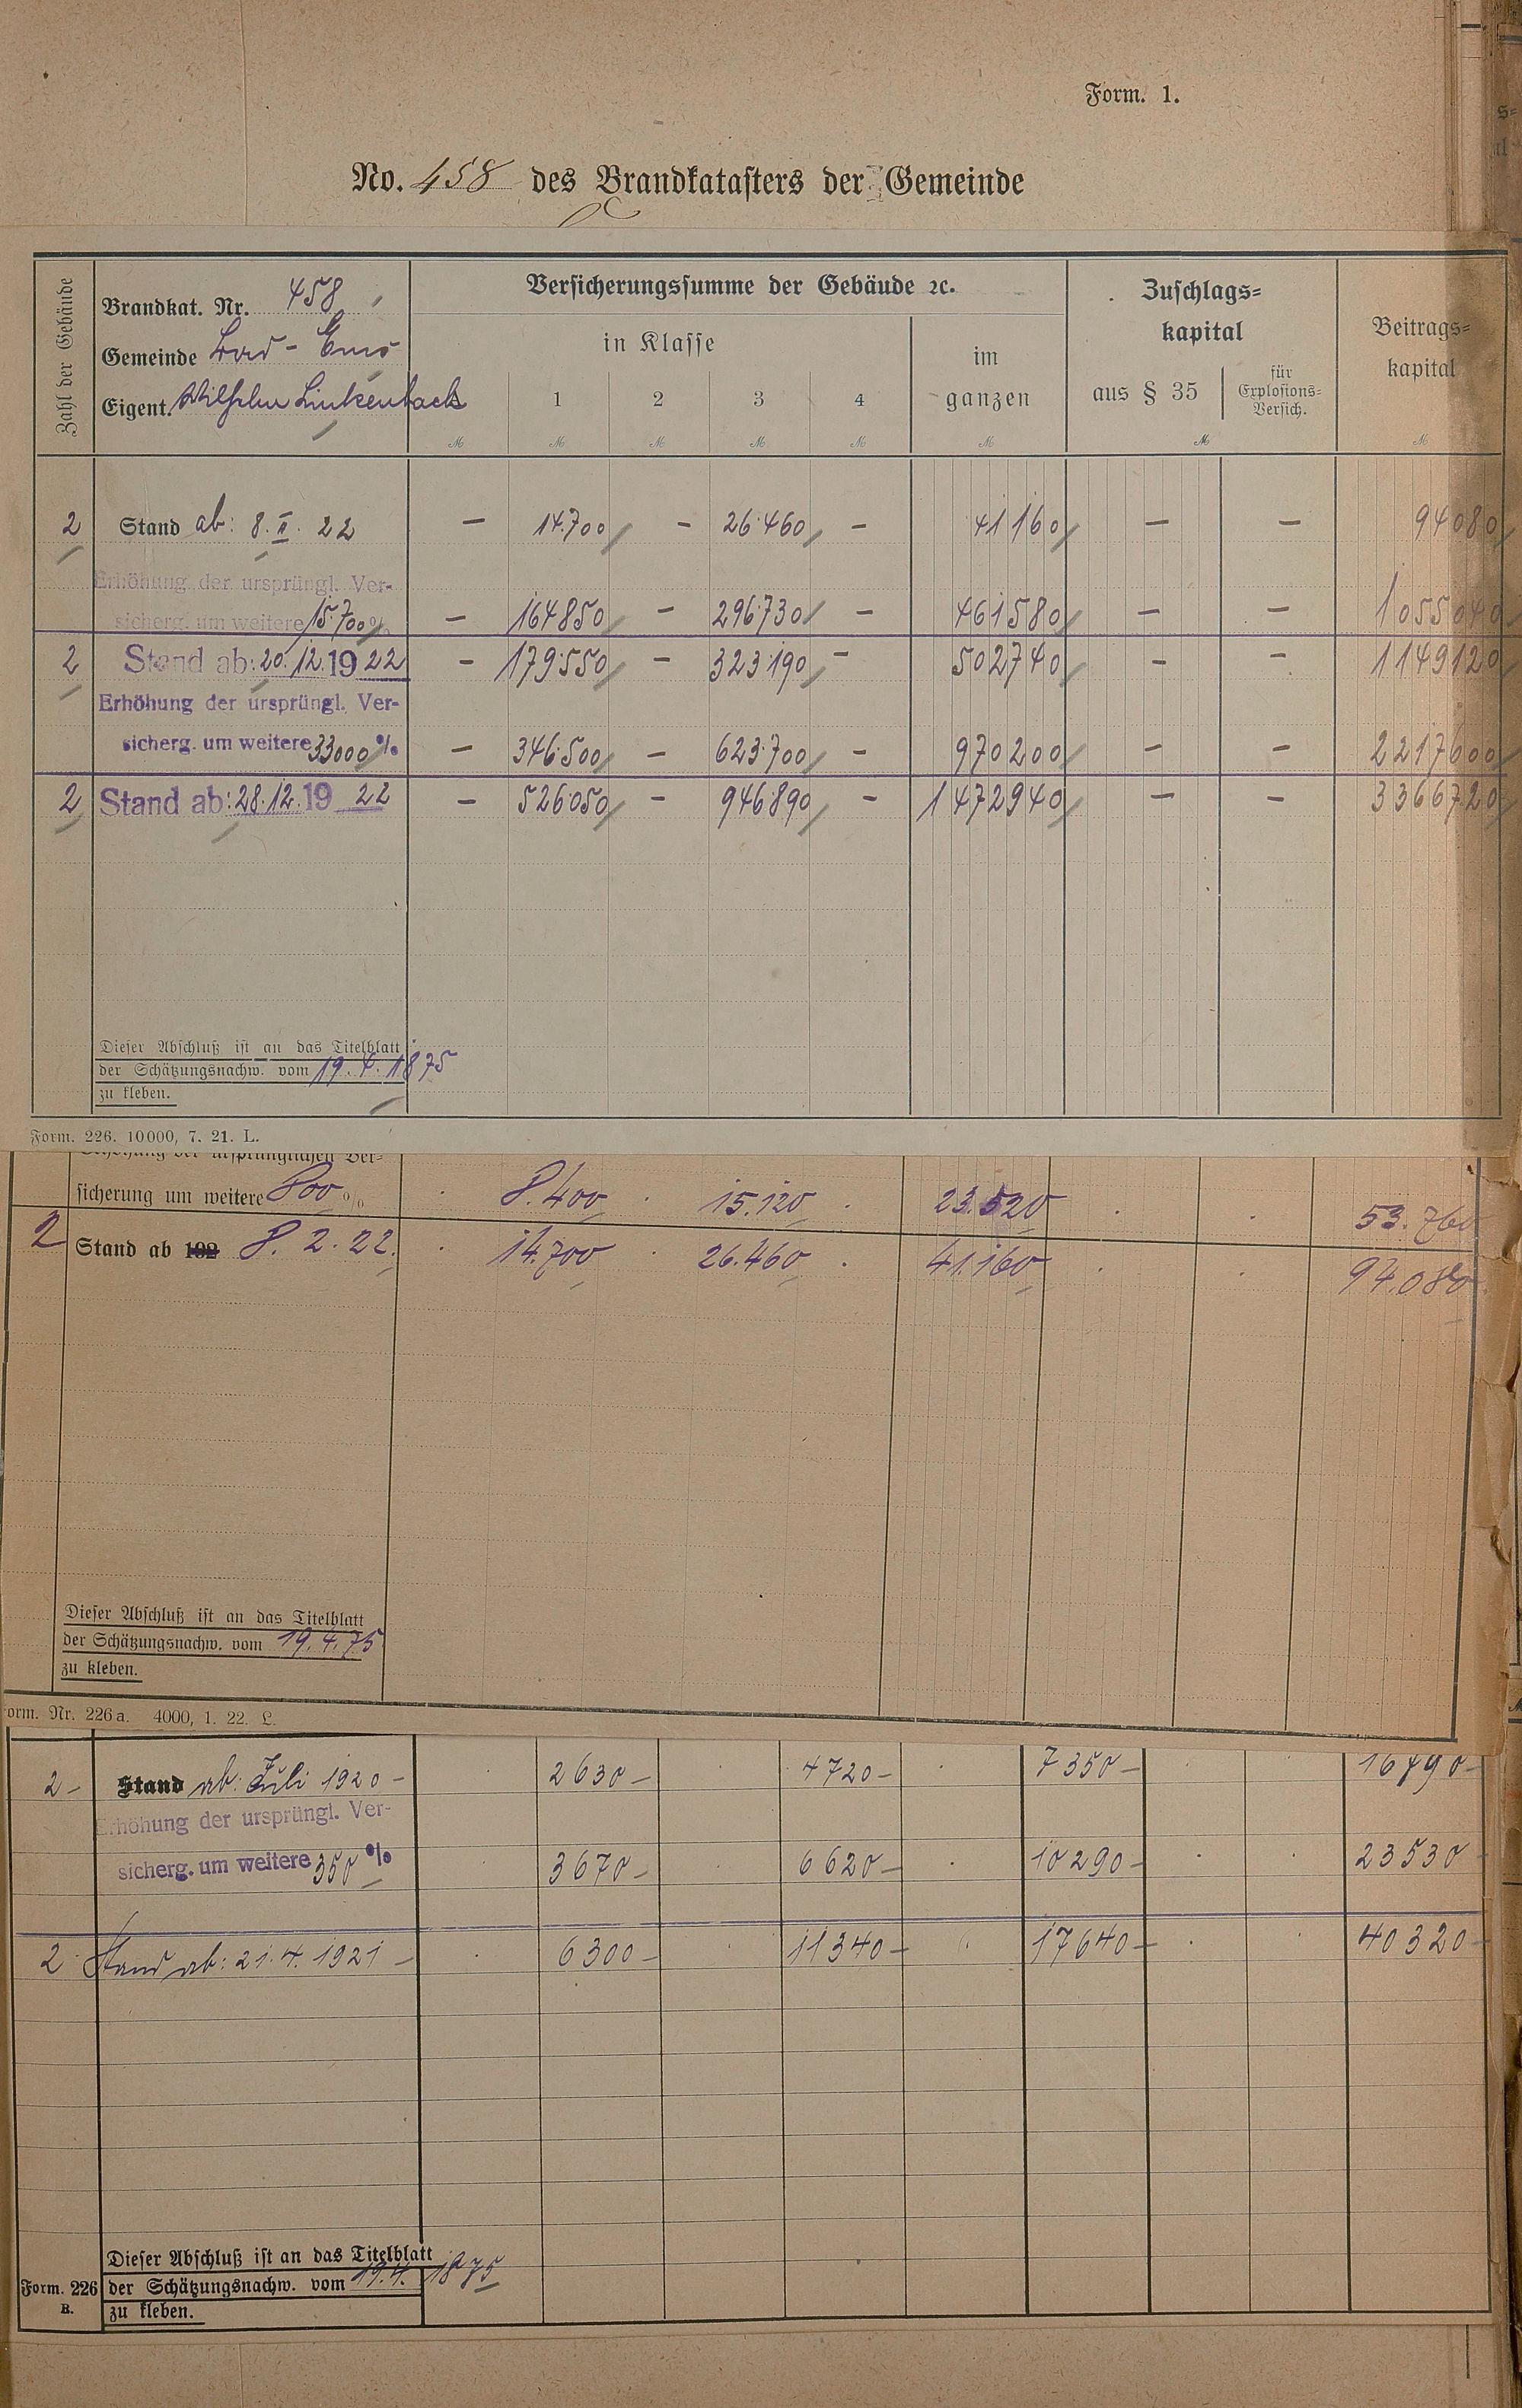 Form. 1.
No. 458 des Brandkatasters der Gemeinde
Zahl der Gebäude
Brandkat. Nr. 458
Gemeinde Bad-Ems
Eigent. Wilhelm Linkenbach
Versicherungssumme der Gebäude ꝛc.
in Klasse
1 2 3 4
im ganzen
Zuschlags=
kapital
aus § 35
für
Explosions=
Versich.
Beitrags=
kapital
M M M M M M M M
2 Stand ab: 8. II. 22 — 14.700 — 26.460 — 41160 — — 94080
Erhöhung der ursprüngl. Ver-
sicherg. um weitere 15.700% — 164850 — 296.730 — 461580 — — 1055040
2 Stand ab: 20.12.1922 — 179.550 — 323.190 — 502740 — — 1149120
Erhöhung der ursprüngl. Ver-
sicherg. um weitere 33000% — 346.500 — 623.700 — 970200 — — 2217600
2 Stand ab: 28.12.1922 — 526.050 — 946.890 — 1472940 — — 3366720
Dieser Abschluß ist an das Titelblatt
der Schätzungsnachw. vom 19.4.1875
zu kleben.
Form. 226. 10000, 7. 21. L.
Erhöhung der ursprünglichen Ver=
sicherung um weitere 800% 8.400 15.120 23.520 53.760
2 Stand ab 192 8.2.22. 14.700 26.460 41.160 94.080
Dieser Abschluß ist an das Titelblatt
der Schätzungsnachw. vom 19.4.75
zu kleben.
orm. Nr. 226a. 4000, 1. 22. L.
2 - Stand ab: Juli 1920 - 2630 - 4720 - 7350 - 16790 -
Erhöhung der ursprüngl. Ver-
sicherg. um weitere 350% 3670 - 6620 - 10290 - 23530
2 Stand ab: 21.4.1921 - 6300 - 11340 - 17640 - 40320 -
Dieser Abschluß ist an das Titelblatt
der Schätzungsnachw. vom 19.4.1875
zu kleben.
Form. 226
B.